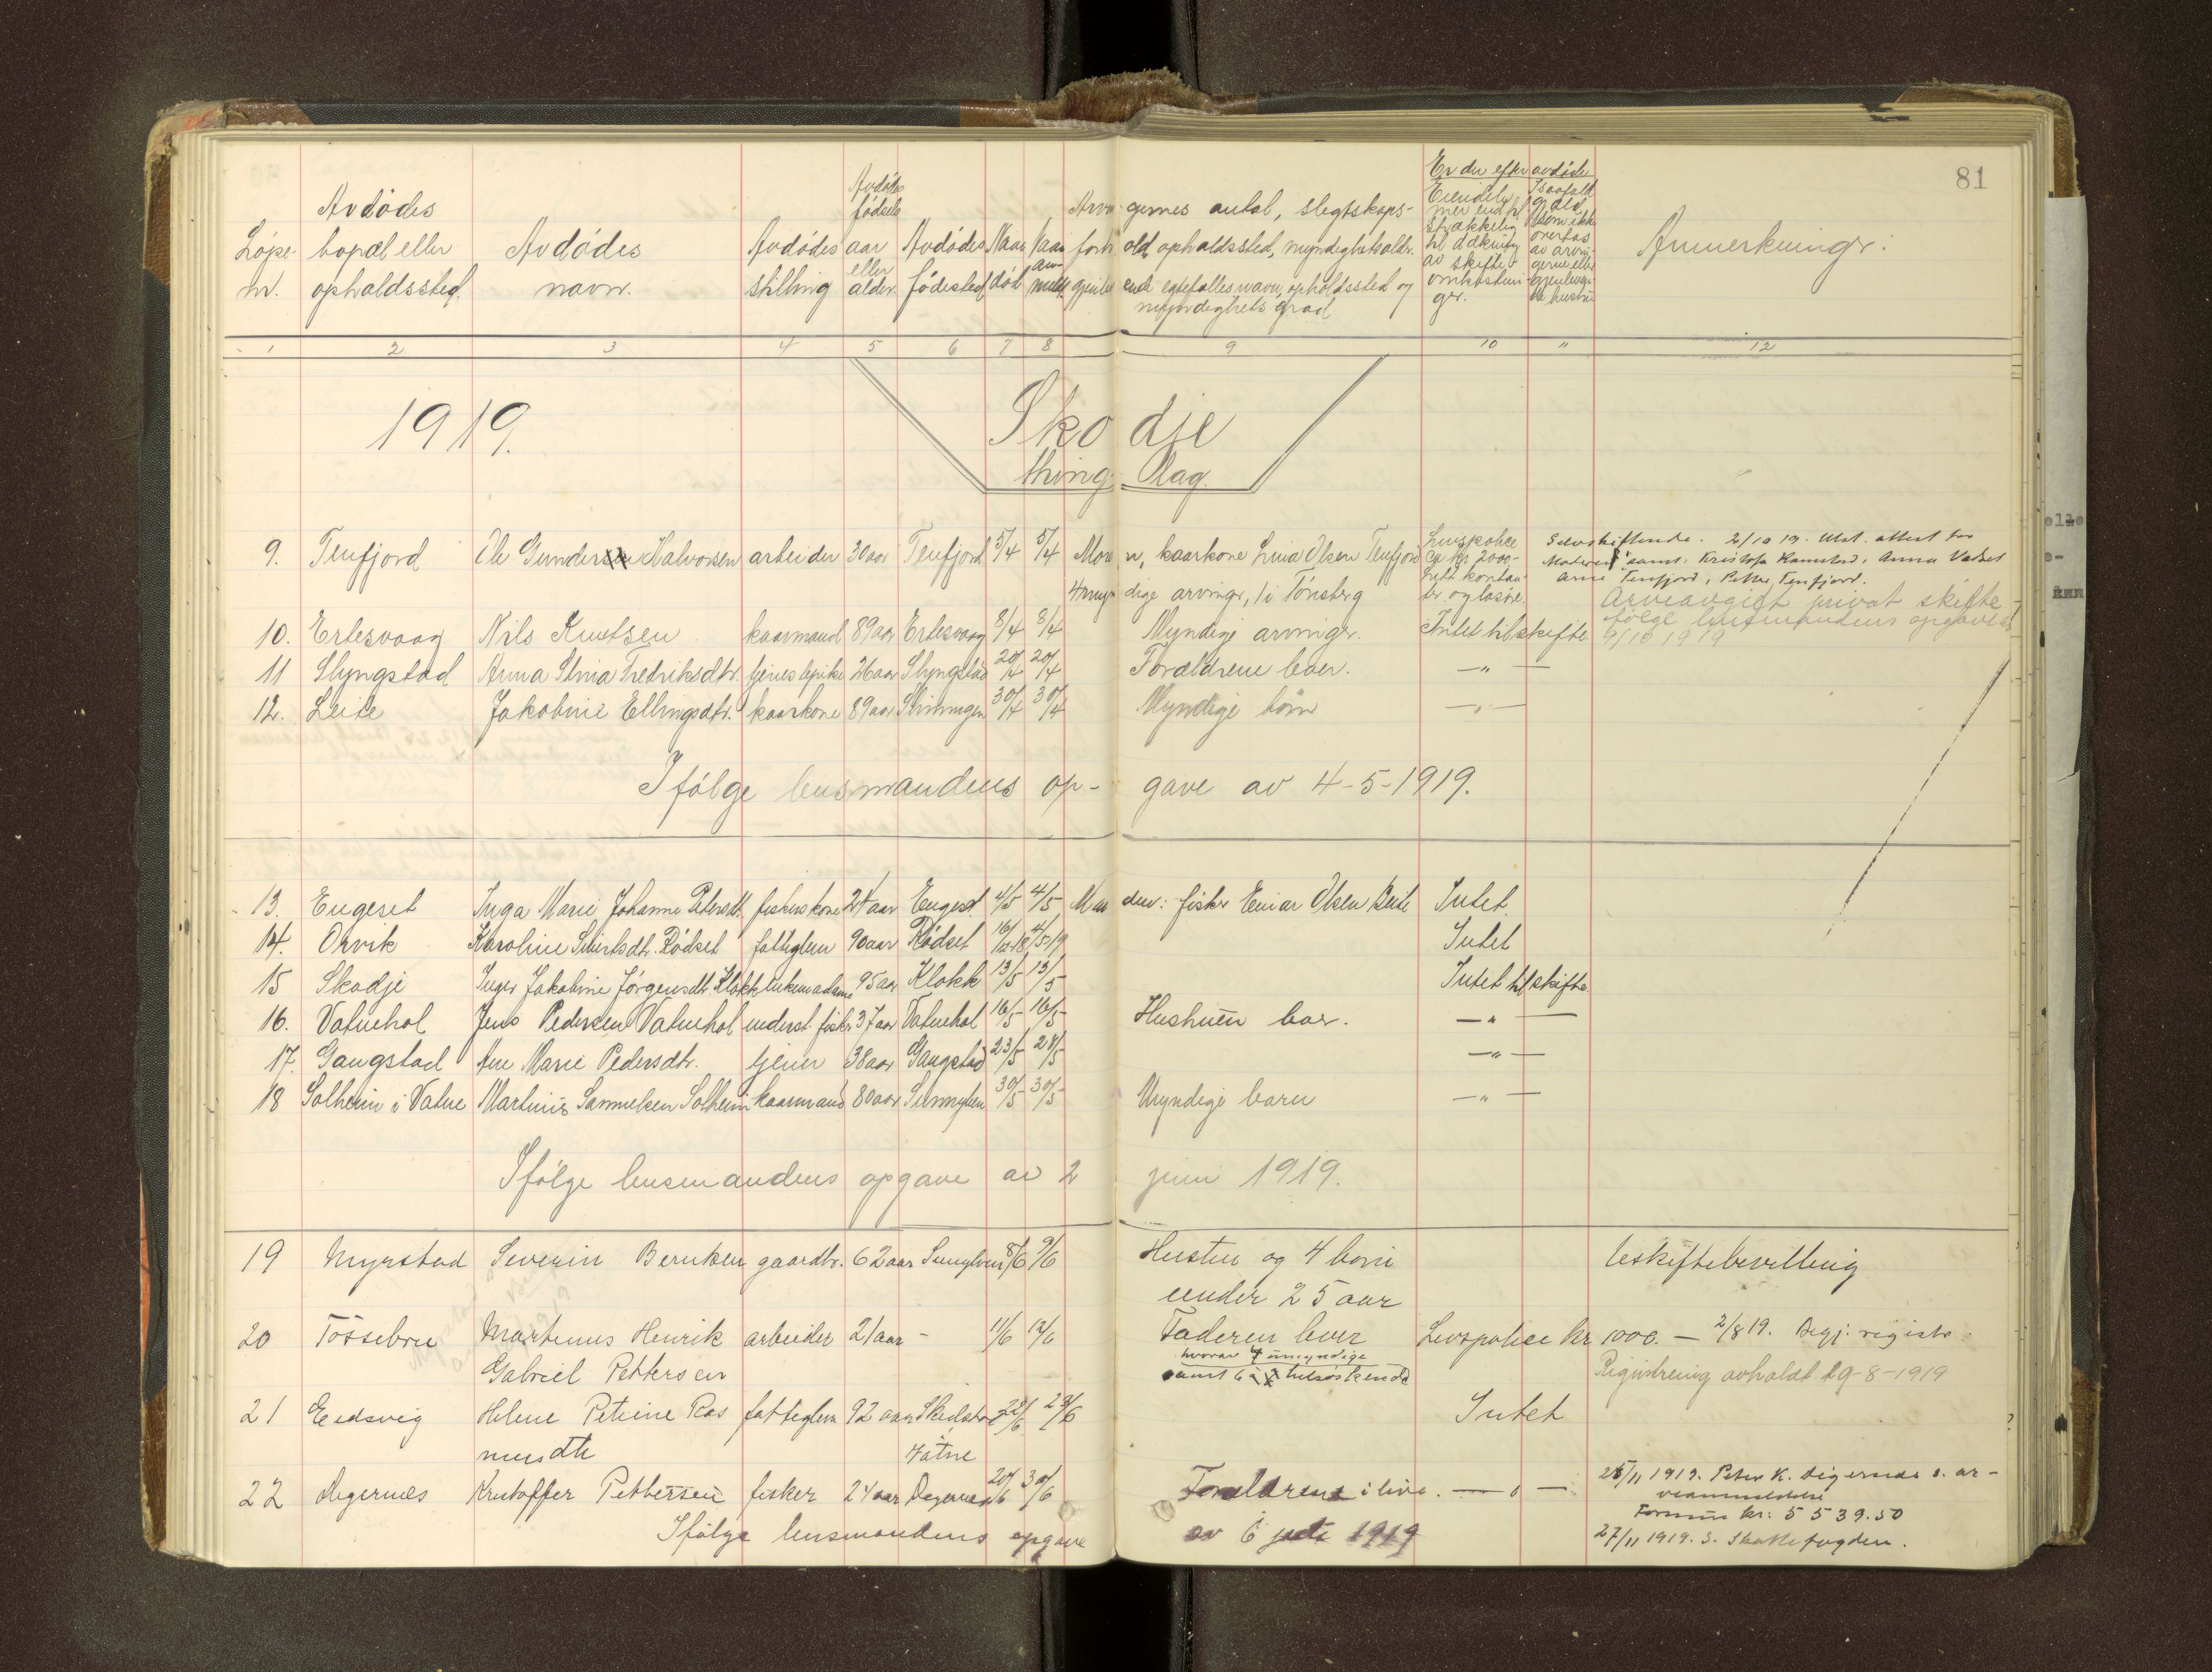 81
Løpe nr. Avdødes bopæl eller opholdssted. Avdødes navn. Avdødes stilling Avdødes fødsels aar eller alder. Avdødes fødested Naar død Naar anmeldt Arvingernes antal, slegtskapsforhold, opholdssted, myndighetsalder. gjenlevende egtefælles navn, opholdssted og myndighets grad Er der efter avdøde Eiendele mer end til strækkelig til dækning av skifteomkostninger. Isaafald gjæld som ikke overtas av arvingerne eller gjenlevende hustru Anmerkninger.
1 2 3 4 5 6 7 8 9 10 " 12
1919. Skodje
thing lag.
9. Tenfjord Ole Gunder Halvorsen arbeider 30 aar Tenfjord 5/4 5/4 Moren, kaarkone Lina Olsen Tenfjord Livspolice Ca kr 2000- Selvskiftende. 2/10 19. Utst. attest for
4 myndige arvinger, 1 i Tønsberg litt kontanter og løsøre. Moderen samt: Kristofa Kamstad, Anna Vadset
Arne Tenfjord, Petter Tenfjord.
Arveavgift privat skifte
10. Ertesvaag Nils Knutsen kaarmand 89 aar Ertesvaag 8/4 8/4 Myndige arvinger. Intet til skifte følge lensmandens opgave 9/10 1919
11 Slyngstad Anna Stina Fredriksdtr. tjenestepike 26 aar Slyngstad 20/4 20/4 Forældrene lever. — " —
12. Leite Jakobine Ellingsdtr. kaarkone 89 aar 30/4 30/4 Myndige børn — " —
Ifølge lensmandens opgave av 4-5-1919.
13. Engeset Inga Marie Johanne Petersdt. fiskers kone 24 aar Engeset 4/5 4/5 Manden: fisker Einar Olsen Leite Intet.
14. Orvik Karoline Sivertsdtr. Rødset fattiglem 90 aar Rødset 16/12 18 4/5 19 Intet
15 Skodje Inger Jakobine Jørgensdtr. Klokk enkemadame 95 aar Klokk 13/5 13/5 Intet til skifte.
16. Vatnehol Jens Pedersen Vatnehol underst. fisker 37 aar Vatnehol 16/5 16/5 Hustruen lever. — " —
17. Gangstad Ane Marie Pedersdtr. tjener 38 aar Gangstad 23/5 28/5 — " —
18 Solheim i Vatne Martinus Samuelsen Solheim kaarmand 80 aar Sunnylven 30/5 30/5 Myndige barn — " —
Ifølge lensmandens opgave av 2 juni 1919.
19 Myrstad Severin Berntsen gaardbr. 62 aar Sunylven 8/6 9/6 Hustru og 4 born uskiftebevilling
under 25 aar
20 Tøssebro Martinus Henrik arbeider 21 aar - 11/6 12/6 Faderen lever Livspolice kr 1000. — 2/8 19. Begj. registr.
Gabriel Pettersen hvorav 4 umyndige samt 6 helsøskende Registrering avholdt 19-8-1919
21 Eidsvig Helene Petrine Ras fattiglem 92 aar 22/6 23/6 Intet
musdtr
22 Digernes Kristoffer Pettersen fisker 24 aar Digernes 20/6 30/6 Forældrene i live. — " — 25/11 1919. Peter K. Digernes s. ar-
veanmeldelse
Formue kr: 5539.50
Ifølge lensmandens opgave av 6 juli 1919 27/11 1919. S. Skattefogden.